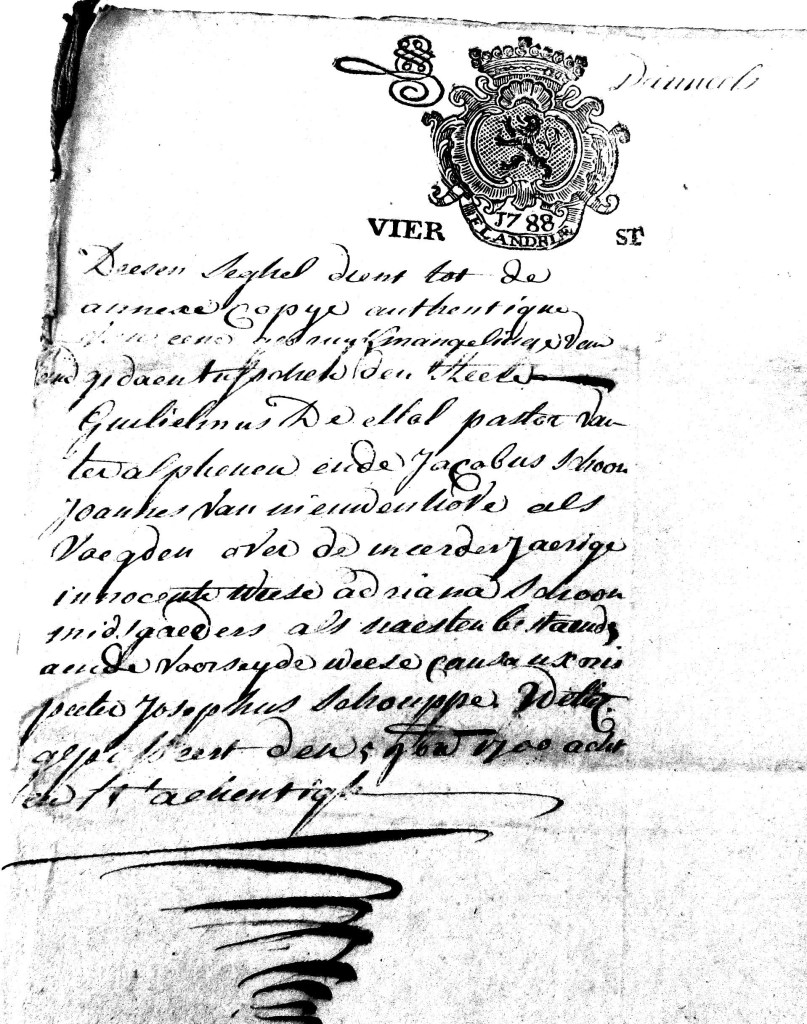 Danneels
1788
FLANDRIÆ
VIER ST
Desen Seghel dient tot de
annexe Copye authentique
van eene mangelinge van
gedaen tusschen den Heere
Guilielmus De Mol pastor van
ter alphenen ende Jacobus Schoon
Joannes Van nieuwenhove als
Voegden over de meerderjaerige
innocente weese adriana Schoon
midtgaeders als naesten bestaende
aende voorseyde weese causa uxoris
peeter Josephus Schouppe.
gepasseert den 5 9bre 1700 acht
en t'achentigh